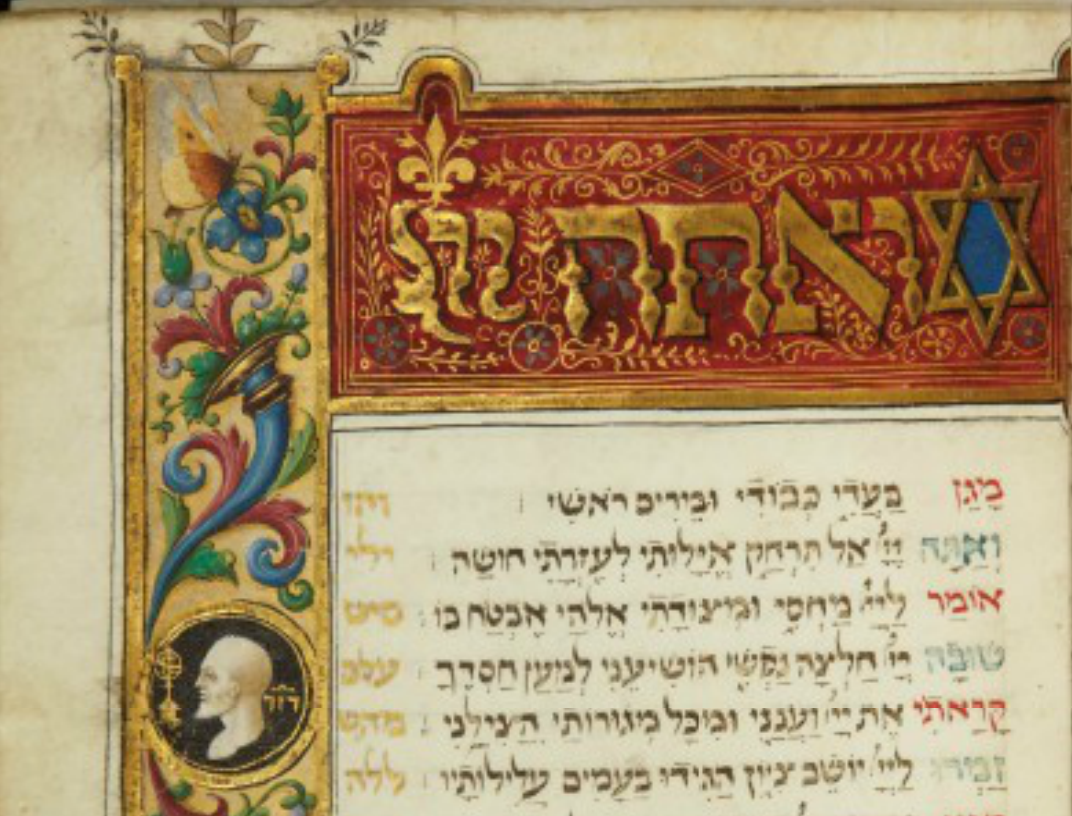 ואתה יי
מָגֵן בַּעֲדִי כְּבוֹדִי וּמֵרִים רֹאשִׁי והו
וְאַתָּה יְיָ אַל תִּרְחָק אֱיָלוּתִי לְעֶזְרָתִי חוּשָׁה ילי
אוֹמַר לַיְיָ מַחְסִי וּמְצוּדָתִי אֱלֹהַי אֶבְטַח בּוֹ סיט
שׁוּבָה יְיָ חַלְּצָה נַפְשִׁי הוֹשִׁיעֵנִי לְמַעַן חַסְדֶּךָ עלם
קָרָאתִי אֶת יְיָ וְעָנָנִי וּמִכָּל מְגוּרוֹתַי הִצִּילָנִי מהש
זַמְּרוּ לַיְיָ יוֹשֵׁב צִיּוֹן הַגִּידוּ בָעַמִּים עֲלִילוֹתָיו ללה
דוד